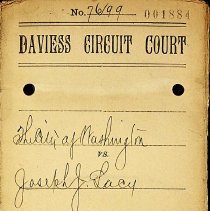 No. 7699 001884
DAVIESS CIRCUIT COURT
The City of Washington
vs.
Joseph J. Lacy